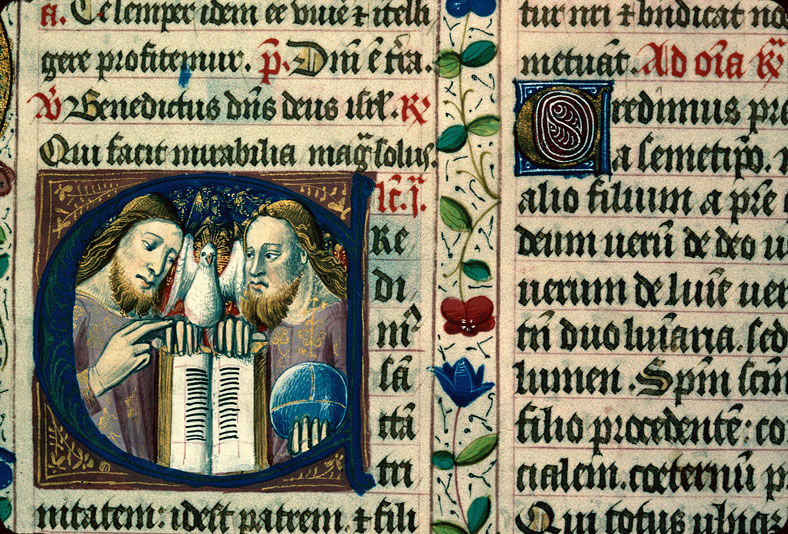 Te semper idem eē viuē ⁊ itelli
gere profitemur. p̄. Dnī ē tr̄a.
℣ Benedictus dn̄s deus isrl̄. ℟
Qui facit mirabilia mag̃ solus.
lc̄.j.
Cre
di
mꝰ
sā
ctā
tri
nitatem: idest patrem. ⁊ fili
tur nr̄i ⁊ bn̄dicat no
metuāt. Ad oīa ℟
Credimus pre
a semetip̄o.
alio filium a pr̄e
deum uerū de deo u
uerum de luīe uer
tn̄ duo luīaria. sed
lumen. Spm̄ scm̄
filio procedentē: co
cialem. coeternū p
Qui totus ubiq